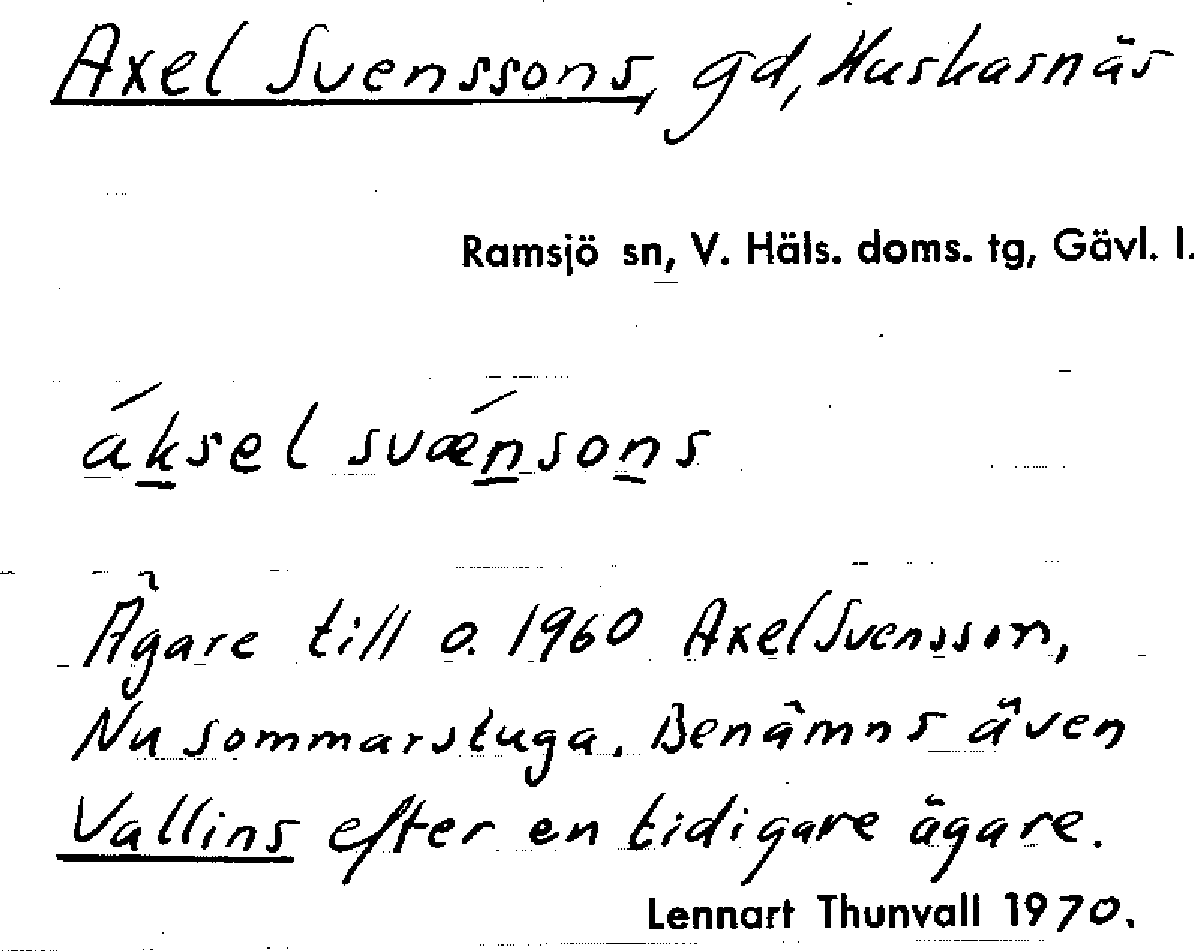 Axel Svenssons, gd, Huskasnäs
Ramsjö sn, V. Häls. doms. tg, Gävl. l.
áksel svǽnsons
Ägare till o. 1960 Axel Svensson,
Nu sommarstuga. Benämns även
Vallins efter en tidigare ägare.
Lennart Thunvall 1970.